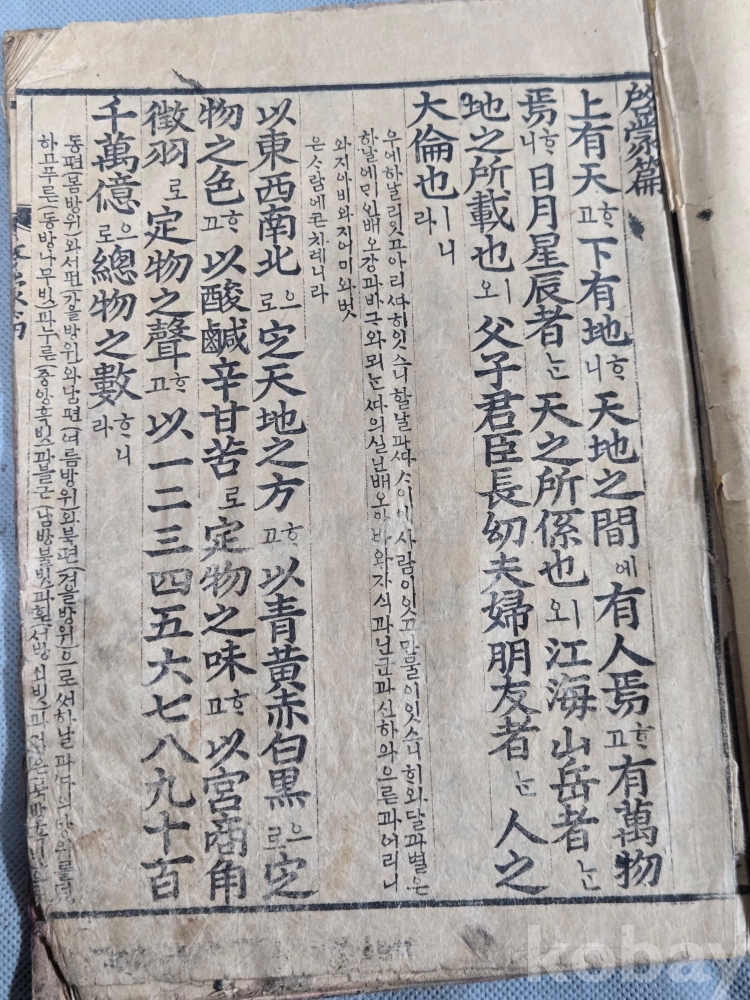 啓蒙篇
上有天ᄒᆞ고 下有地ᄒᆞ니 天地之間에 有人焉ᄒᆞ고 有萬物
焉ᄒᆞ니 日月星辰者ᄂᆞᆫ 天之所係也ㅣ오 江海山岳者ᄂᆞᆫ
地之所載也ㅣ오 父子君臣長幼夫婦朋友者ᄂᆞᆫ 人之
大倫也ㅣ니라
우에하날리잇고아리ᄯᅡ히잇스니하날과ᄯᅡᄉᆞ이에사람이잇고만물이잇스니ᄒᆡ와달과별은
하날에ᄆᆡ인배오강과바다와뫼ᄂᆞᆫᄯᅡ의실닌배오아바와자식과닌군과신하와으른과어리니
와지아비와지어미와벗
은ᄉᆞ람에큰차례니라
以東西南北으로 定天地之方ᄒᆞ고 以青黃赤白黑으로 定
物之色ᄒᆞ고 以酸鹹辛甘苦로 定物之味ᄒᆞ고 以宮商角
徵羽로 定物之聲ᄒᆞ고 以一二三四五六七八九十百
千萬億으로 總物之數ᄒᆞ니라
동편(봄방위)와서편(가을방위)와남편(여름방위)와북편(겨을방위)으로써하날과ᄯᅡ의방위를뎡
하고푸른(동방나무빗)과누른(중앙흑빗)과불근(남방불빗)과흰(서방쇠빗)과검은(북방
kobay